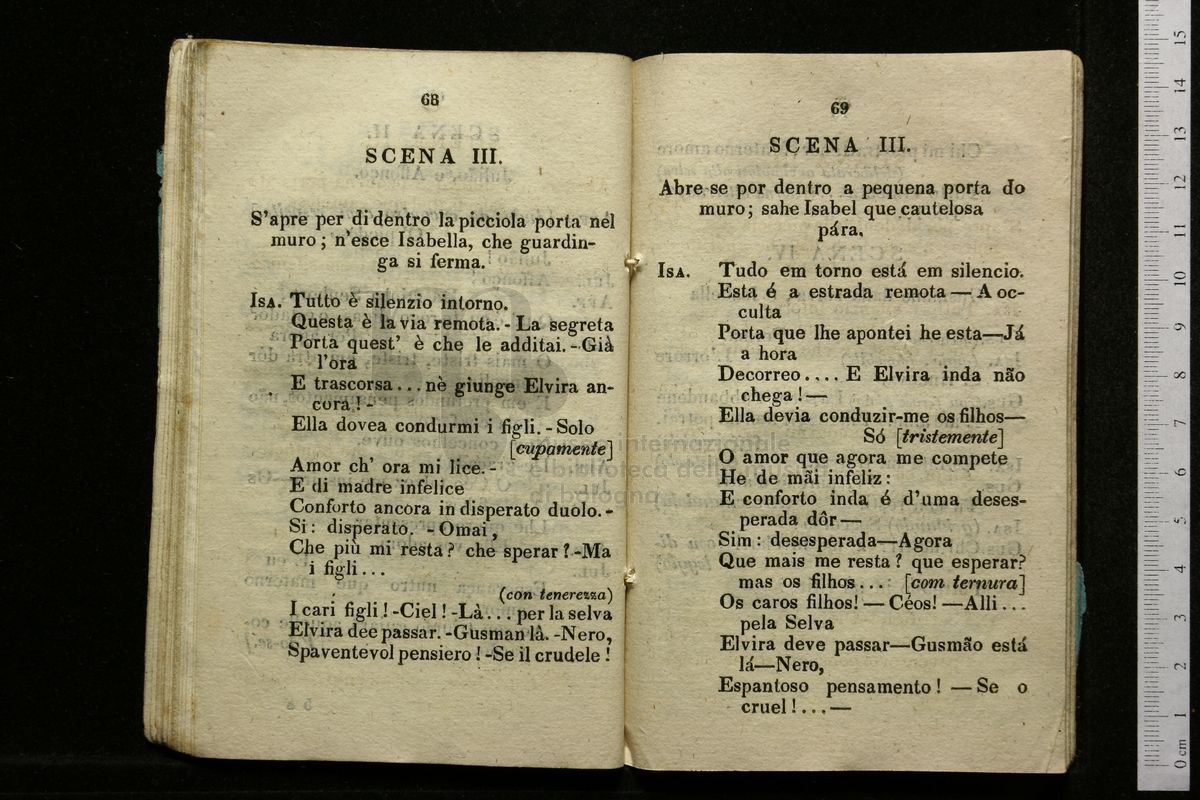 68
SCENA III.
S'apre per di dentro la picciola porta nel
muro; n'esce Isabella, che guardin-
ga si ferma.
ISA. Tutto è silenzio intorno.
Questa è la via remota. - La segreta
Porta quest' è che le additai. - Già
l'ora
E trascorsa... nè giunge Elvira an-
cora! -
Ella dovea condurmi i figli. - Solo
[cupamente]
Amor ch' ora mi lice. -
E di madre infelice
Conforto ancora in disperato duolo. -
Si: disperato. - Omai,
Che più mi resta? che sperar? - Ma
i figli...
(con tenerezza)
I cari figli! - Ciel! - Là... per la selva
Elvira dee passar. - Gusman là. - Nero,
Spaventevol pensiero! - Se il crudele!
69
SCENA III.
Abre-se por dentro a pequena porta do
muro; sahe Isabel que cautelosa
pára.
ISA. Tudo em torno está em silencio.
Esta é a estrada remota — A oc-
culta
Porta que lhe apontei he esta—Já
a hora
Decorreo.... E Elvira inda não
chega! —
Ella devia conduzir-me os filhos—
Só [tristemente]
O amor que agora me compete
He de mãi infeliz:
E conforto inda é d'uma deses-
perada dôr —
Sim: desesperada—Agora
Que mais me resta? que esperar?
mas os filhos... [com ternura]
Os caros filhos! — Céos! —Alli...
pela Selva
Elvira deve passar—Gusmão está
lá—Nero,
Espantoso pensamento! — Se o
cruel!...—
internazionale
e biblioteca della musica
di bologna
0 cm 1 2 3 4 5 6 7 8 9 10 11 12 13 14 15